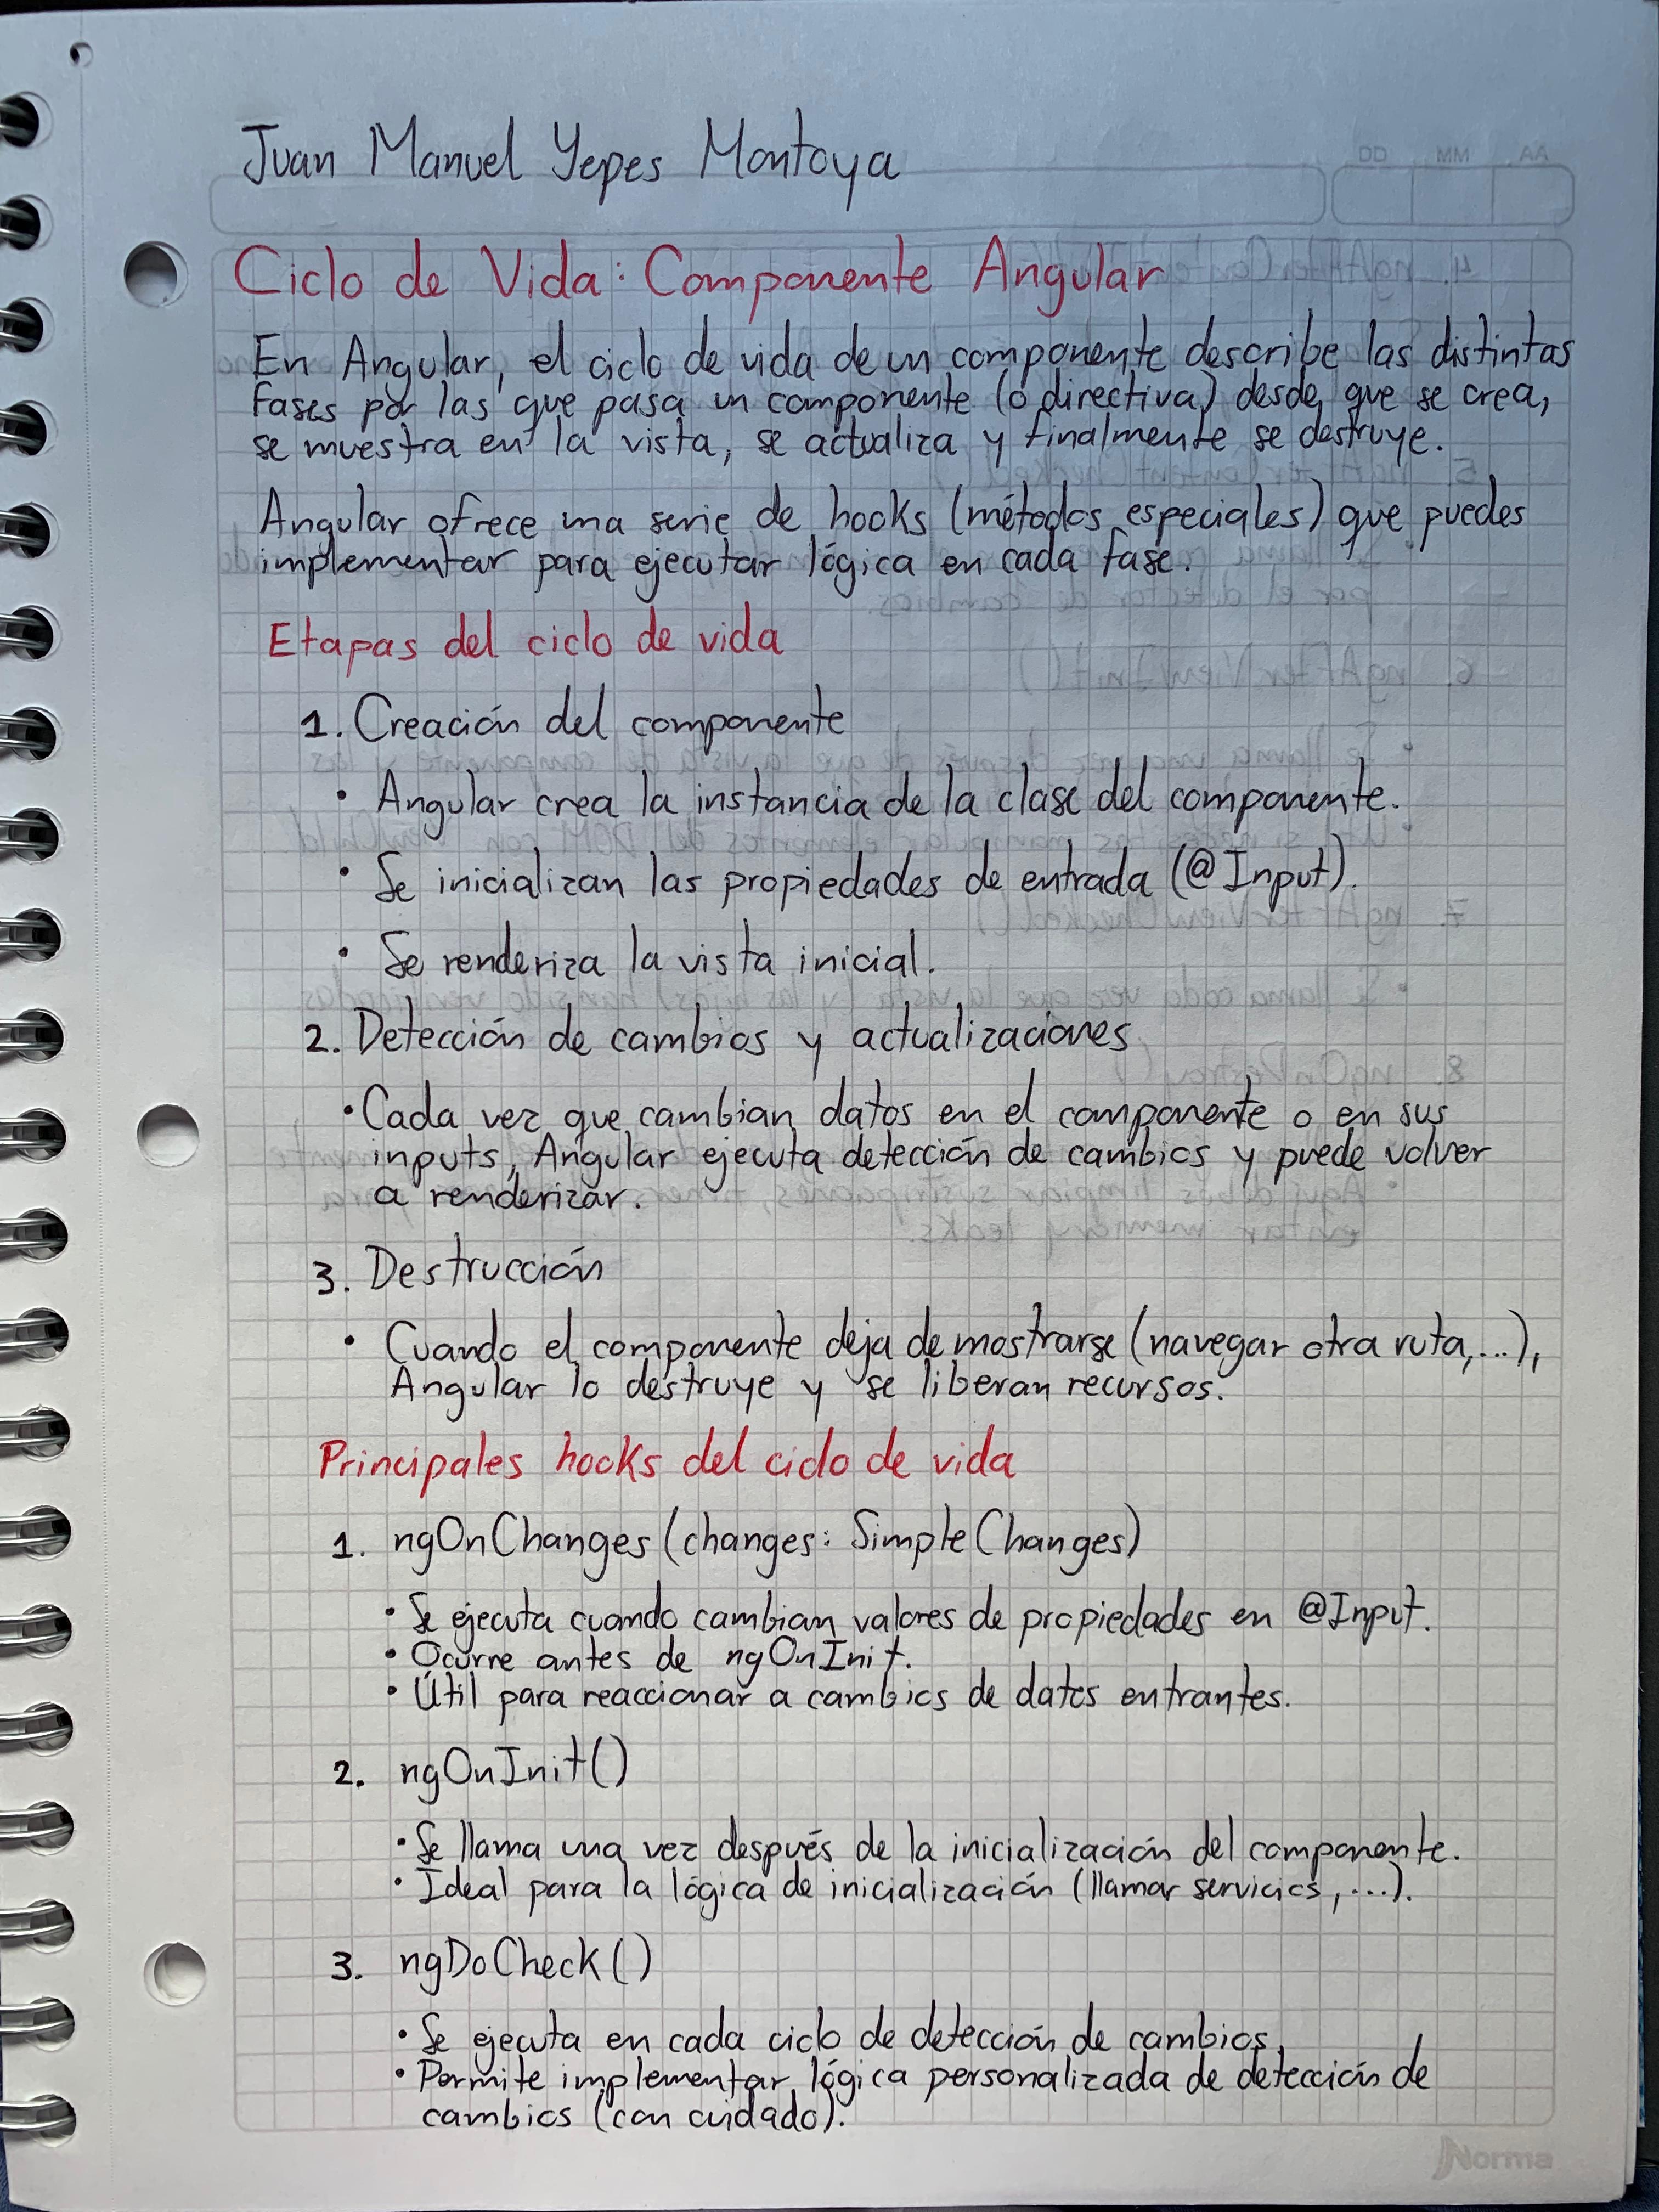 AA MM DD
Juan Manuel Yepes Montoya
Ciclo de Vida: Componente Angular
En Angular, el ciclo de vida de un componente describe las distintas
fases por las que pasa un componente (o directiva) desde que se crea,
se muestra en la vista, se actualiza y finalmente se destruye.
Angular ofrece una serie de hooks (métodos especiales) que puedes
implementar para ejecutar lógica en cada fase.
Etapas del ciclo de vida
1. Creación del componente
• Angular crea la instancia de la clase del componente.
• Se inicializan las propiedades de entrada (@Input).
• Se renderiza la vista inicial.
2. Detección de cambios y actualizaciones
• Cada vez que cambian datos en el componente o en sus
inputs, Angular ejecuta detección de cambios y puede volver
a renderizar.
3. Destrucción
• Cuando el componente deja de mostrarse (navegar otra ruta,...),
Angular lo destruye y se liberan recursos.
Principales hooks del ciclo de vida
1. ngOnChanges (changes: SimpleChanges)
• Se ejecuta cuando cambian valores de propiedades en @Input.
• Ocurre antes de ngOnInit.
• Útil para reaccionar a cambios de datos entrantes.
2. ngOnInit()
• Se llama una vez después de la inicialización del componente.
• Ideal para la lógica de inicialización (llamar servicios, ...).
3. ngDoCheck()
• Se ejecuta en cada ciclo de detección de cambios.
• Permite implementar lógica personalizada de detección de
cambios (con cuidado).
Norma